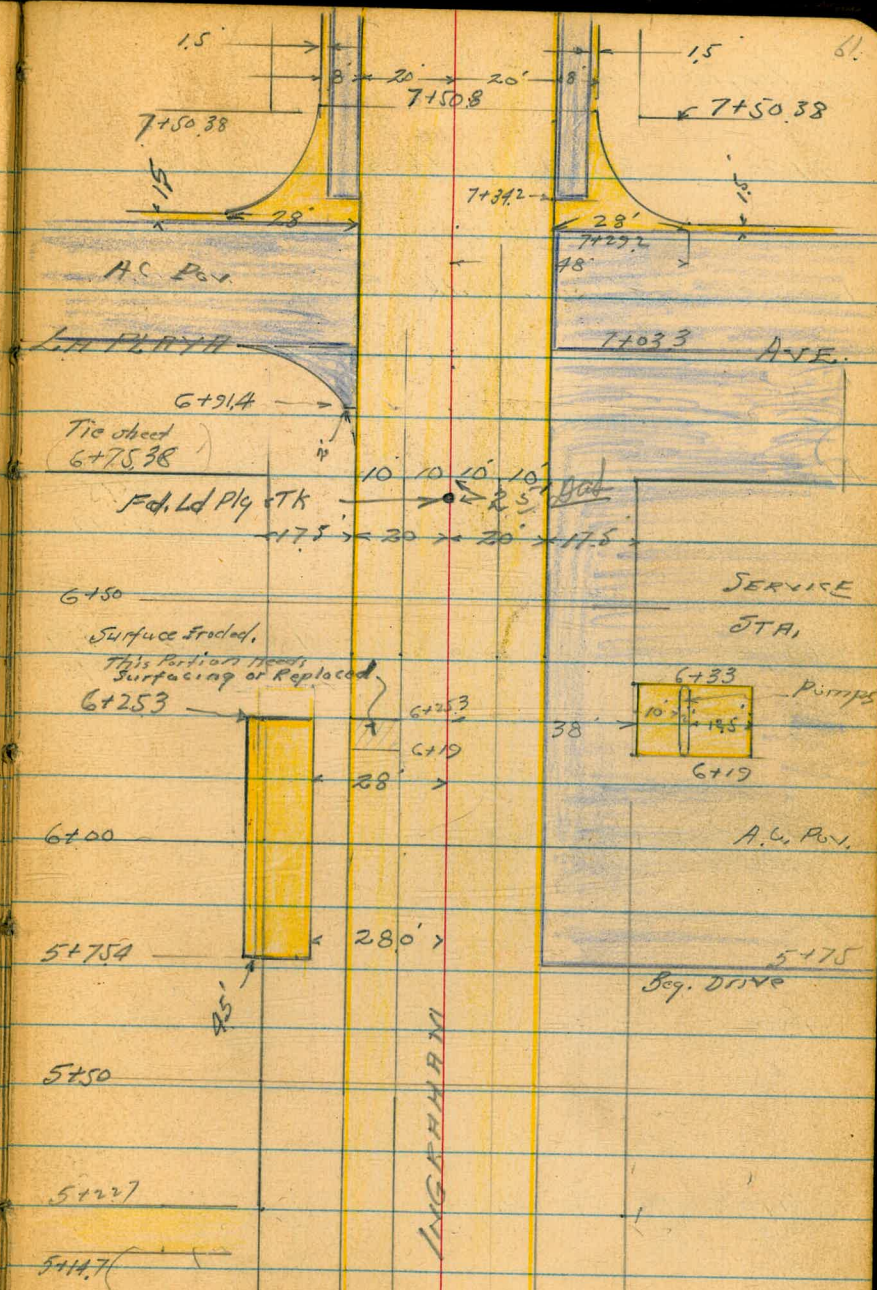 61.
1.5 1.5
8' 20' 20' 8'
7+50.8
7+50.38 7+50.38
1.5 1.5
7+34.2
28' 28'
7+29.2
48'
A.C. Pav.
LA PLAYA AVE.
7+03.3
6+91.4
Tie sheet
6+75.38
10' 10' 10' 10'
Fd. Ld Plg & TK 2.5'
17.5 20 20' 17.5
6+50 SERVICE
STA.
Surface Eroded.
This Portion needs
Surfacing or Replaced
6+33
6+25.3 6+25.3 Pumps
10' 19.5'
38'
6+19 6+19
28'
6+00 A.C. Pav.
28.0'
5+75.4 5+75
Beg. Drive
9.5'
5+50
INGRAHAM
5+22.7
5+14.7